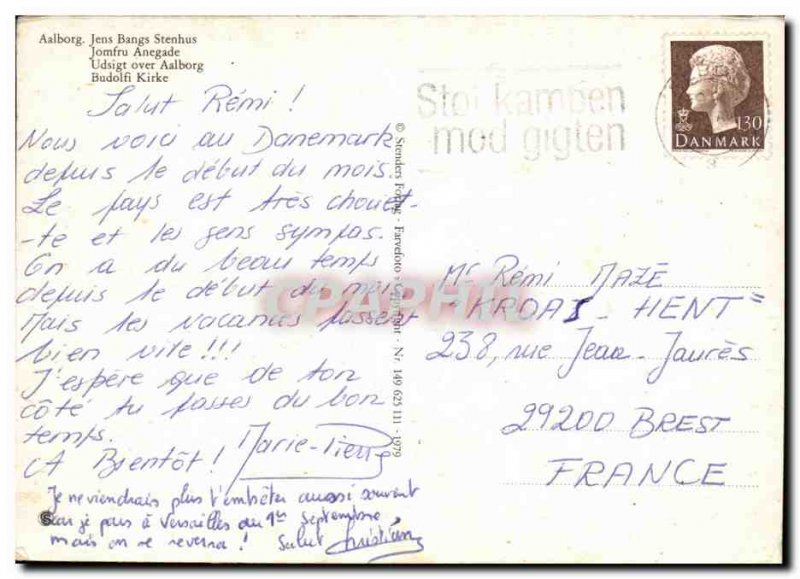 Aalborg. Jens Bangs Stenhus
Jomfru Anegade
Udsigt over Aalborg
Budolfi Kirke
Salut Rémi !
Nous voici au Danemark
depuis le début du mois.
Le pays est très chouet-
-te et les gens sympas.
On a du beau temps
depuis le début du mois
Mais les vacances passent
bien vite !!!
J'espère que de ton
côté tu passes du bon
temps.
A Bientôt ! Marie-Pierre
Je ne viendrais plus t'embêter aussi souvent
car je pars à Versailles au 1er Septembre
mais on se reverra ! Salut Christian
© Stenders Forlag - Farvefoto - Copyright - Nr 149 625 111 - 1979
Støt kampen
mod gigten
130
DANMARK
CPARAMA
Mr Rémi MAZÉ
"KROAS - HENT"
238, rue Jean-Jaurès
29200 BREST
FRANCE